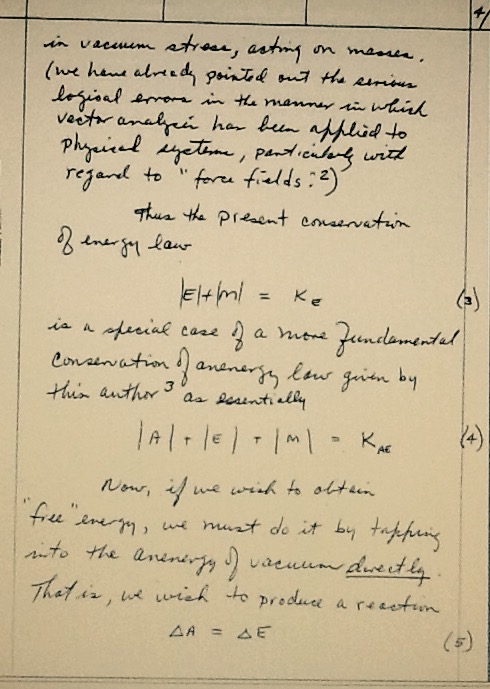 4/
in vacuum stress, acting on masses.
(we have already pointed out the serious
logical errors in the manner in which
vector analysis has been applied to
physical systems, particularly with
regard to "force fields."2)
Thus the present conservation
of energy law
|E|+|M| = K_E (3)
is a special case of a more fundamental
conservation of anenergy law given by
this author 3 as essentially
|A| + |E| + |M| = K_AE (4)
Now, if we wish to obtain
"free" energy, we must do it by tapping
into the anenergy of vacuum directly.
That is, we wish to produce a reaction
ΔA = ΔE (5)